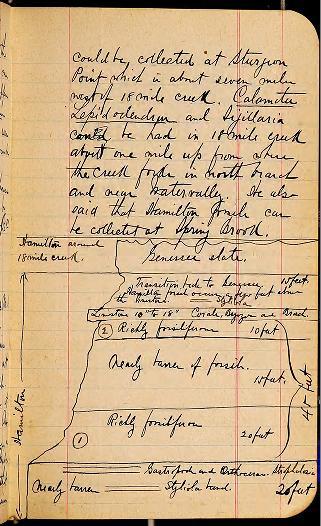 could be collected at Sturgeon
Point which is about seven miles
west of 18 mile creek. Calamites
Lepidodendron and Sigillaria
could be had in 18 mile creek
about one mile up from where
the creek forks in north branch
and near Watervally. He also
said that Hamilton fossils can
be collected at Spring Brook.
Hamilton around
18 mile creek
Genessee slate.
Transition beds to Genessee 15 feet.
Hamilton fossil occur
but above
the
10" to 18" Corals, and Brach.
② Richly fossiliferous 10 feet
Nearly barren of fossils.
15 feet.
45 feet
Richly fossiliferous
20 feet
①
Hamilton
Gastropod and Orthoceras.
Nearly barren Styliola band. 20 feet